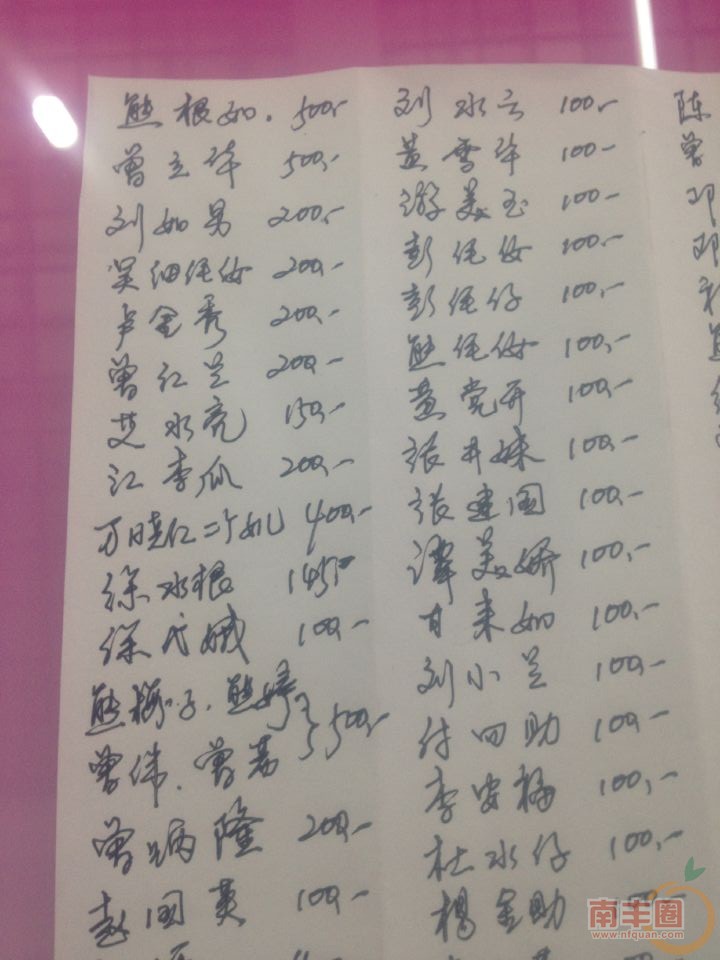 熊根如. 500,-
曾立华 500,-
刘如男 200,-
吴细伲女 200,-
卢金秀 200,-
曾红兰 200,-
艾水亮 150,-
江李瓜 200,-
万晓仁二 400,-
徐水根
徐代娥 100,-
熊梅子. 熊婷
曾伟. 曾荔 } 500,-
曾炳隆 200,-
赵国英 100,-
刘水云 100,-
黄雪华 100-
游美玉 100-
彭伲女 100,-
彭伲仔 100,-
熊伲女 100,-
黄党开 100,-
张井妹 100,-
张建国 100,-
谭美娇 100,-
甘来如 100,-
刘小兰 100,-
付四助 100,-
李安梅 100,-
杜水仔 100,-
杨金助
陈
曾
邓
邓
南丰圈
www.nfquan.com